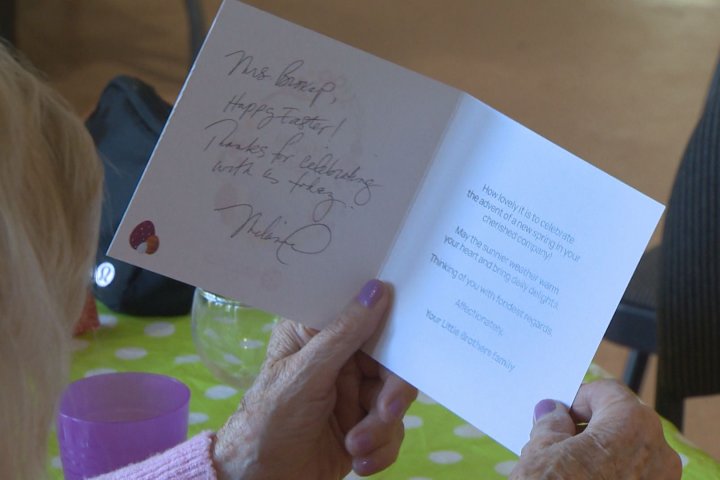 Mrs
Happy Easter!
Thanks for celebrating
with us today.
Melissa
How lovely it is to celebrate
the advent of a new spring in your
cherished company!
May the sunnier weather warm
your heart and bring daily delights.
Thinking of you with fondest regards,
Affectionately,
Your Little Brothers family